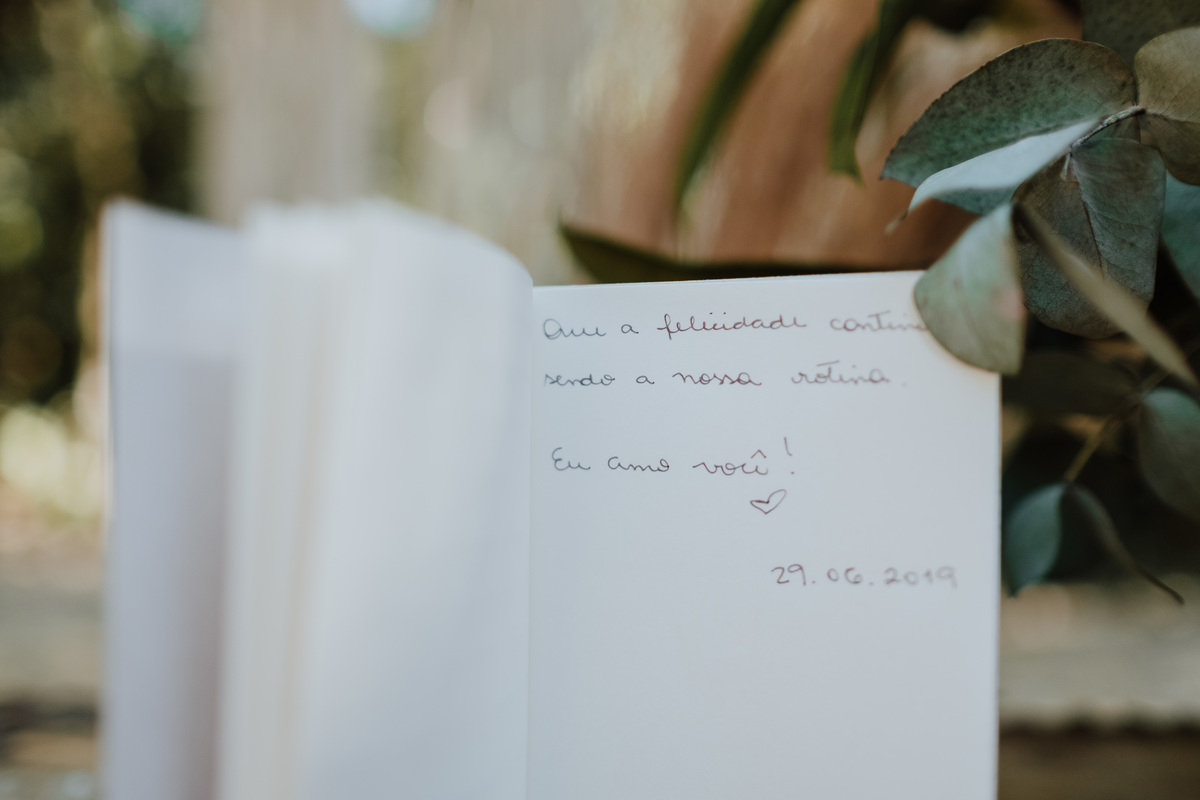 Que a felicidade continu
sendo a nossa rotina.
Eu amo você!
29.06.2019